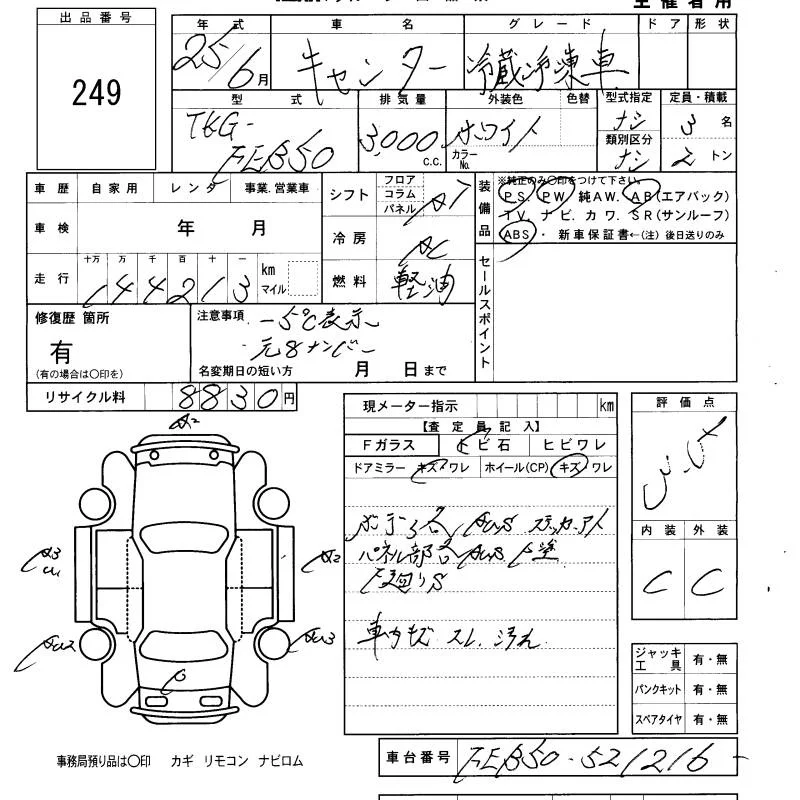 主催者用
出品番号
249
年式 車名 グレード ドア 形状
25/6月 キャンター 冷蔵冷凍車
型式 排気量 外装色 色替 型式指定 定員・積載
TKG-FEB50 3,000c.c. ホワイト カラーNo. ナシ 3名
類別区分 ナシ 2トン
車歴 自家用 レンタ 事業.営業車
シフト フロア コラム パネル AT
装備品 ※純正のみ○印をつけて下さい。
PS. PW 純AW. AB(エアバック)
TV. ナビ. カワ. SR(サンルーフ)
ABS・ 新車保証書←(注)後日送りのみ
車検 年 月
冷房 AC
走行 十万 万 千 百 十 一
144213 km マイル
燃料 軽油
セールスポイント
修復歴 箇所
有
(有の場合は○印を)
注意事項 -5℃表示
元8ナンバー
名変期日の短い方 月 日まで
リサイクル料 8830円
現メーター指示 km
【査定員記入】
Fガラス トビ石 ヒビワレ
ドアミラー キズ・ワレ ホイール(CP) キズ・ワレ
ボデー各AUS ステッカーアト
パネル部各AUS 下塗
下廻りS
車内キズ スレ. 汚れ
評価点
内装 外装
C C
A2
A3
U1
A2
AU2
AU3
ジャッキ工具 有・無
パンクキット 有・無
スペアタイヤ 有・無
事務局預り品は○印 カギ リモコン ナビロム
車台番号 FEB50-521216